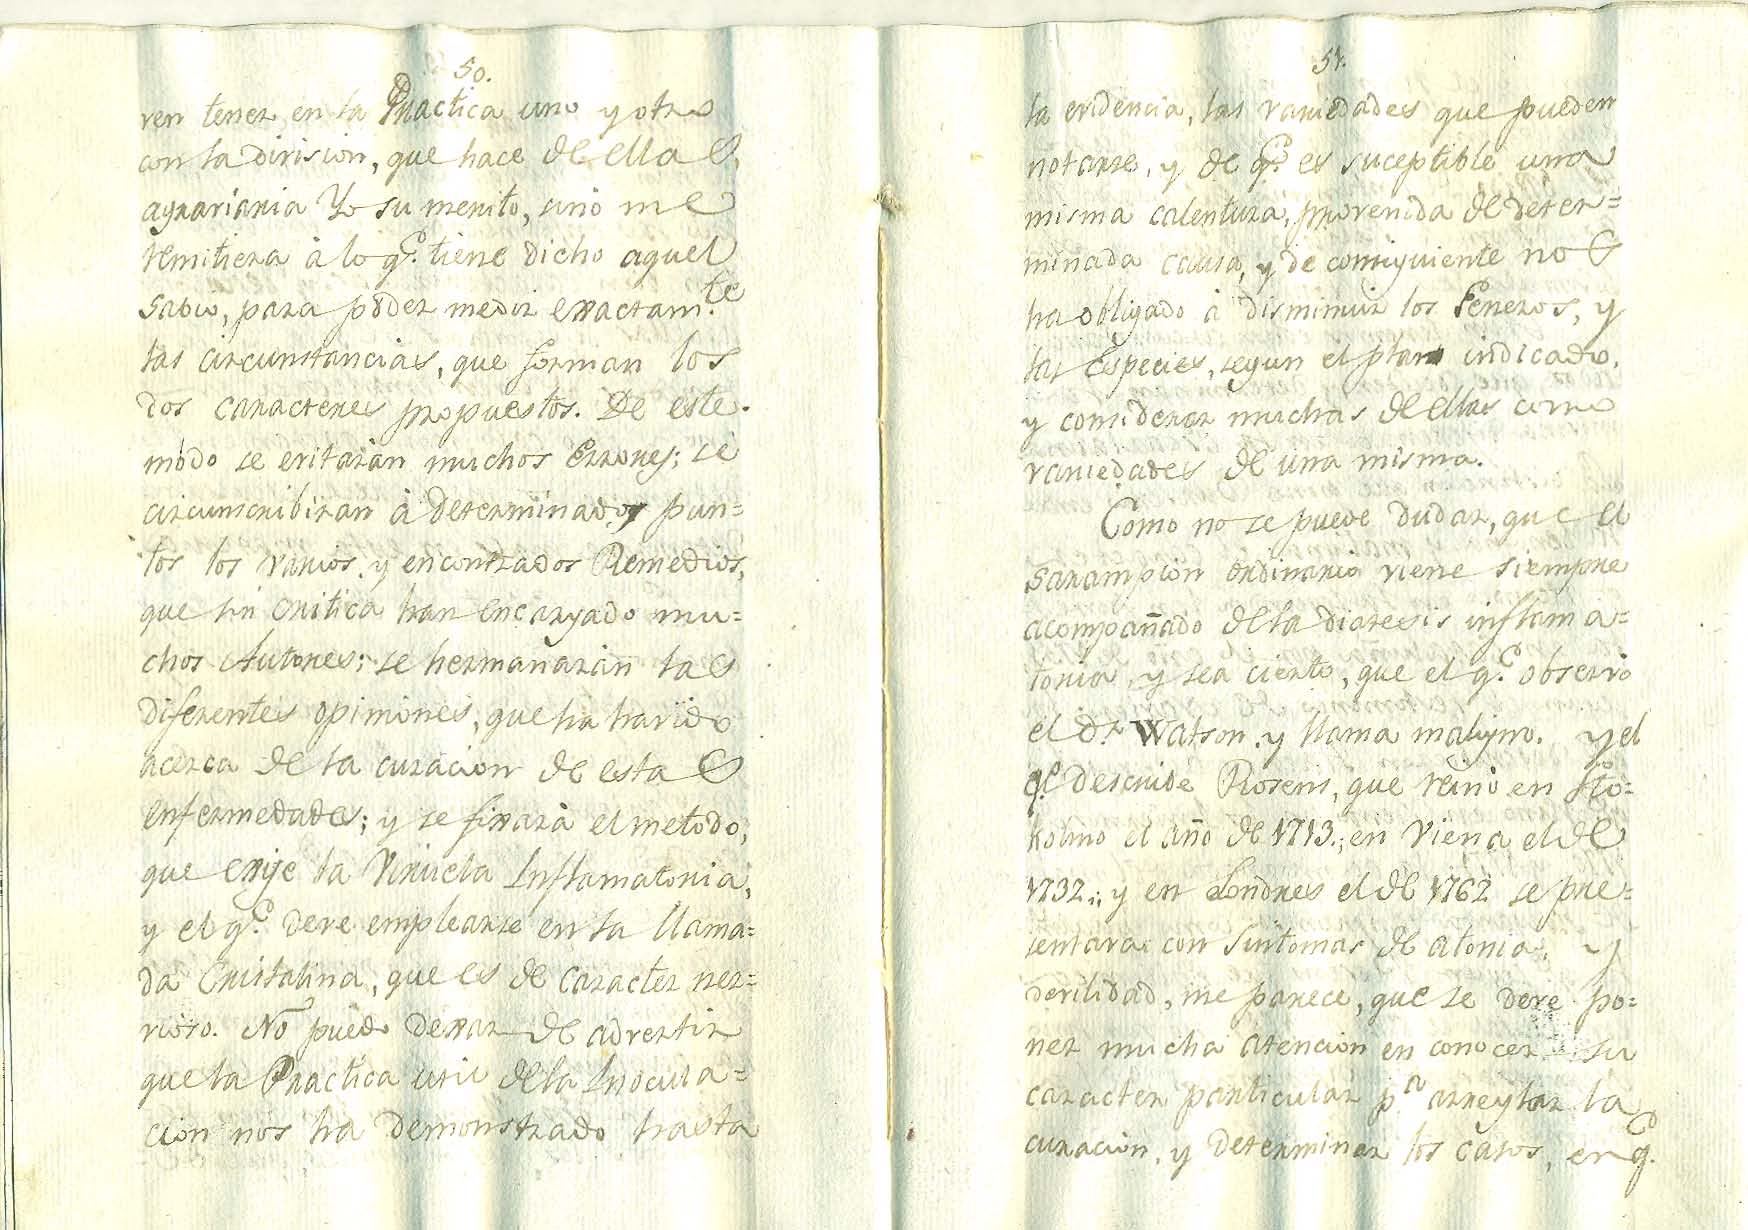 50.
ren tener en la Practica uno y otro
con la division, que hace de ellas
agraviaria Yo su merito, sino me
remitiera à lo q.e tiene dicho aquel
Sabio, para poder medir exactam.te
las circunstancias, que forman los
dos caracteres propuestos. De este
modo se evitaràn muchos Errores; se
circunscribiràn à determinados pun=
tos los varios, y encontrados Remedios,
que sin Critica han encargado mu=
chos Autores; se hermanaràn las
diferentes opiniones, que ha havido
acerca de la curacion de estas
enfermedades; y se fixarà el metodo,
que exije la Viruela Inflamatoria,
y el q.e deve emplearse en la llama=
da Cristalina, que es de caracter ner=
vioso. No puedo dexar de advertir
que la Practica util de la Inocula=
cion nos ha demonstrado hasta
51.
la evidencia, las variedades que pueden
notarse, y de q.e es suceptible una
misma calentura, provenida de deter=
minada causa, y de consiguiente nos
ha obligado à disminuir los Generos, y
las Especies, segun el plan indicado,
y considerar muchas de ellas como
variedades de una misma.
Como no se puede dudar, que el
Sarampion ordinario viene siempre
acompañado de la diatesis inflama=
toria, y sea cierto, que el q.e observò
el D.r Watson, y llama maligno. y el
q.e descrive Rosens, que reinò en Sto=
kolmo el año de 1713.; en Viena el de
1732.; y en Londres el de 1762 se pre=
sentaras con Sintomas de atonia, y
devilidad, me parece, que se deve po=
ner mucha atencion en conocer su
caracter particular p.a arreglar la
curacion, y determinar los casos, en q.e